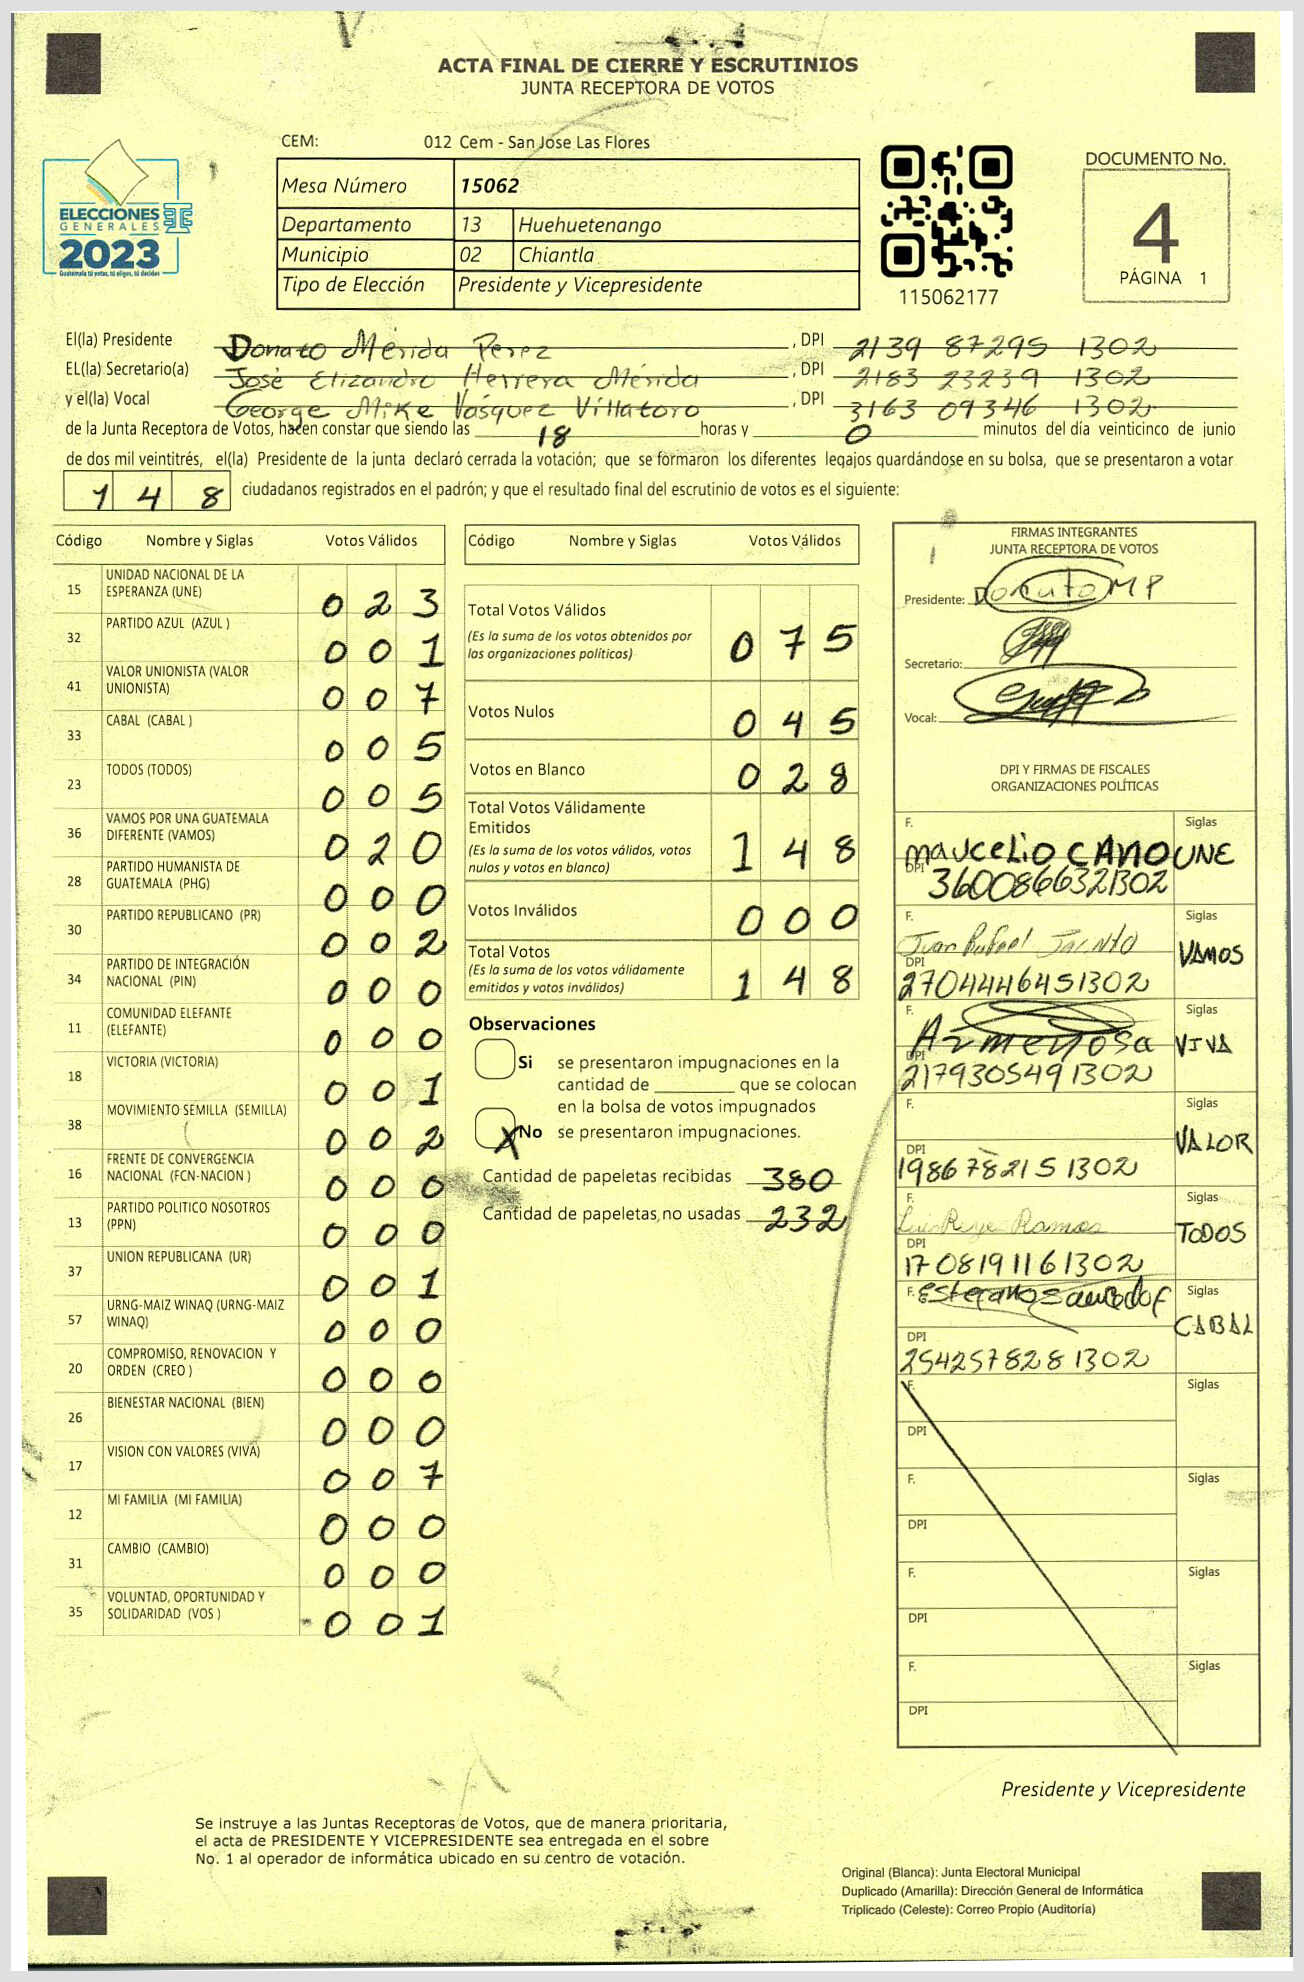 ACTA FINAL DE CIERRE Y ESCRUTINIOS
JUNTA RECEPTORA DE VOTOS
CEM: 012 Cem - San Jose Las Flores
Mesa Número 15062
Departamento 13 Huehuetenango
Municipio 02 Chiantla
Tipo de Elección Presidente y Vicepresidente
ELECCIONES
GENERALES
2023
Guatemala tú votas, tú eliges, tú decides
115062177
DOCUMENTO No.
4
PÁGINA 1
El(la) Presidente Donato Mérida Perez, DPI 2139 87295 1302
EL(la) Secretario(a) José Elizandro Herrera Mérida, DPI 2183 23239 1302
y el(la) Vocal George Mike Vásquez Villatoro, DPI 3163 09346 1302
de la Junta Receptora de Votos, hacen constar que siendo las 18 horas y 0 minutos del día veinticinco de junio
de dos mil veintitrés, el(la) Presidente de la junta declaró cerrada la votación; que se formaron los diferentes legajos quardándose en su bolsa, que se presentaron a votar
148 ciudadanos registrados en el padrón; y que el resultado final del escrutinio de votos es el siguiente:
Código Nombre y Siglas Votos Válidos
15 UNIDAD NACIONAL DE LA
ESPERANZA (UNE) 023
32 PARTIDO AZUL (AZUL ) 001
41 VALOR UNIONISTA (VALOR
UNIONISTA) 007
33 CABAL (CABAL ) 005
23 TODOS (TODOS) 005
36 VAMOS POR UNA GUATEMALA
DIFERENTE (VAMOS) 020
28 PARTIDO HUMANISTA DE
GUATEMALA (PHG) 000
30 PARTIDO REPUBLICANO (PR) 002
34 PARTIDO DE INTEGRACIÓN
NACIONAL (PIN) 000
11 COMUNIDAD ELEFANTE
(ELEFANTE) 000
18 VICTORIA (VICTORIA) 001
38 MOVIMIENTO SEMILLA (SEMILLA) 002
16 FRENTE DE CONVERGENCIA
NACIONAL (FCN-NACION ) 000
13 PARTIDO POLITICO NOSOTROS
(PPN) 000
37 UNION REPUBLICANA (UR) 001
57 URNG-MAIZ WINAQ (URNG-MAIZ
WINAQ) 000
20 COMPROMISO, RENOVACION Y
ORDEN (CREO ) 000
26 BIENESTAR NACIONAL (BIEN) 000
17 VISION CON VALORES (VIVA) 007
12 MI FAMILIA (MI FAMILIA) 000
31 CAMBIO (CAMBIO) 000
35 VOLUNTAD, OPORTUNIDAD Y
SOLIDARIDAD (VOS ) 001
Código Nombre y Siglas Votos Válidos
Total Votos Válidos 075
(Es la suma de los votos obtenidos por
las organizaciones políticas)
Votos Nulos 045
Votos en Blanco 028
Total Votos Válidamente
Emitidos 148
(Es la suma de los votos válidos, votos
nulos y votos en blanco)
Votos Inválidos 000
Total Votos 148
(Es la suma de los votos válidamente
emitidos y votos inválidos)
Observaciones
Si se presentaron impugnaciones en la
cantidad de ________ que se colocan
en la bolsa de votos impugnados
X No se presentaron impugnaciones.
Cantidad de papeletas recibidas 380
Cantidad de papeletas no usadas 232
FIRMAS INTEGRANTES
JUNTA RECEPTORA DE VOTOS
Presidente: Donato MP
Secretario:
Vocal:
DPI Y FIRMAS DE FISCALES
ORGANIZACIONES POLÍTICAS
F. Marcelio CANO Siglas UNE
DPI 3600866321302
F. Juan Rafael Jacinto Siglas VAMOS
DPI 2704446451302
F. Siglas VIVA
DPI 2179305491302
F. Siglas VALOR
DPI 1986782151302
F. Luis Reye Ramos Siglas TODOS
DPI 1708191161302
F. Siglas CABAL
DPI 2542578281302
F. Siglas
DPI
F. Siglas
DPI
F. Siglas
DPI
F. Siglas
DPI
Presidente y Vicepresidente
Se instruye a las Juntas Receptoras de Votos, que de manera prioritaria,
el acta de PRESIDENTE Y VICEPRESIDENTE sea entregada en el sobre
No. 1 al operador de informática ubicado en su centro de votación.
Original (Blanca): Junta Electoral Municipal
Duplicado (Amarilla): Dirección General de Informática
Triplicado (Celeste): Correo Propio (Auditoría)